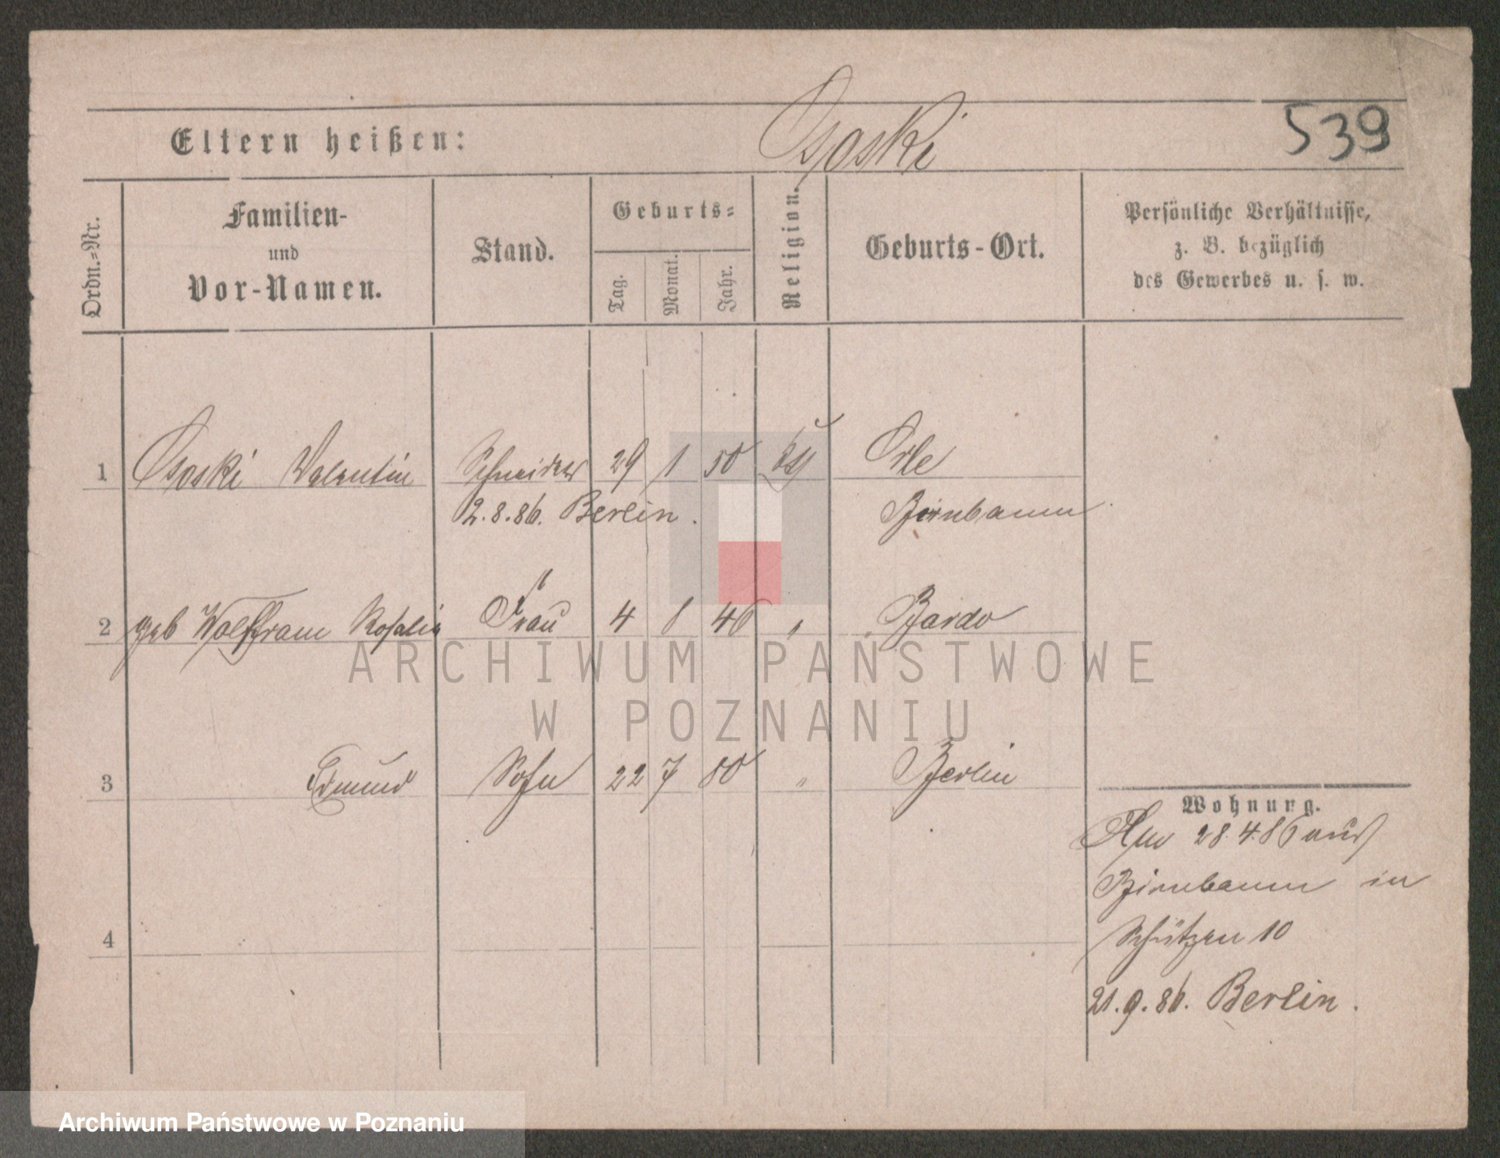 Eltern heißen: Ososki 539
Ordn.-Nr.
Familien-
und
Vor-Namen.
Stand.
Geburts-
Tag. Monat. Jahr.
Religion.
Geburts-Ort.
Persönliche Verhältnisse,
z. B. bezüglich
des Gewerbes u. s. w.
1 Ososki Valentin Schneider 29 1 50 Orle
2.8.86. Berlin. Birnbaum
2 geb Wolffram Rosalie Frau 4 8 46 " Bardo
ARCHIWUM PAŃSTWOWE
W POZNANIU
3 Edmund Sohn 22 7 80 " Berlin
Wohnung.
Am 28.4.86 aus
Birnbaum in
4 Schützen 10
21.9.86. Berlin.
Archiwum Państwowe w Poznaniu